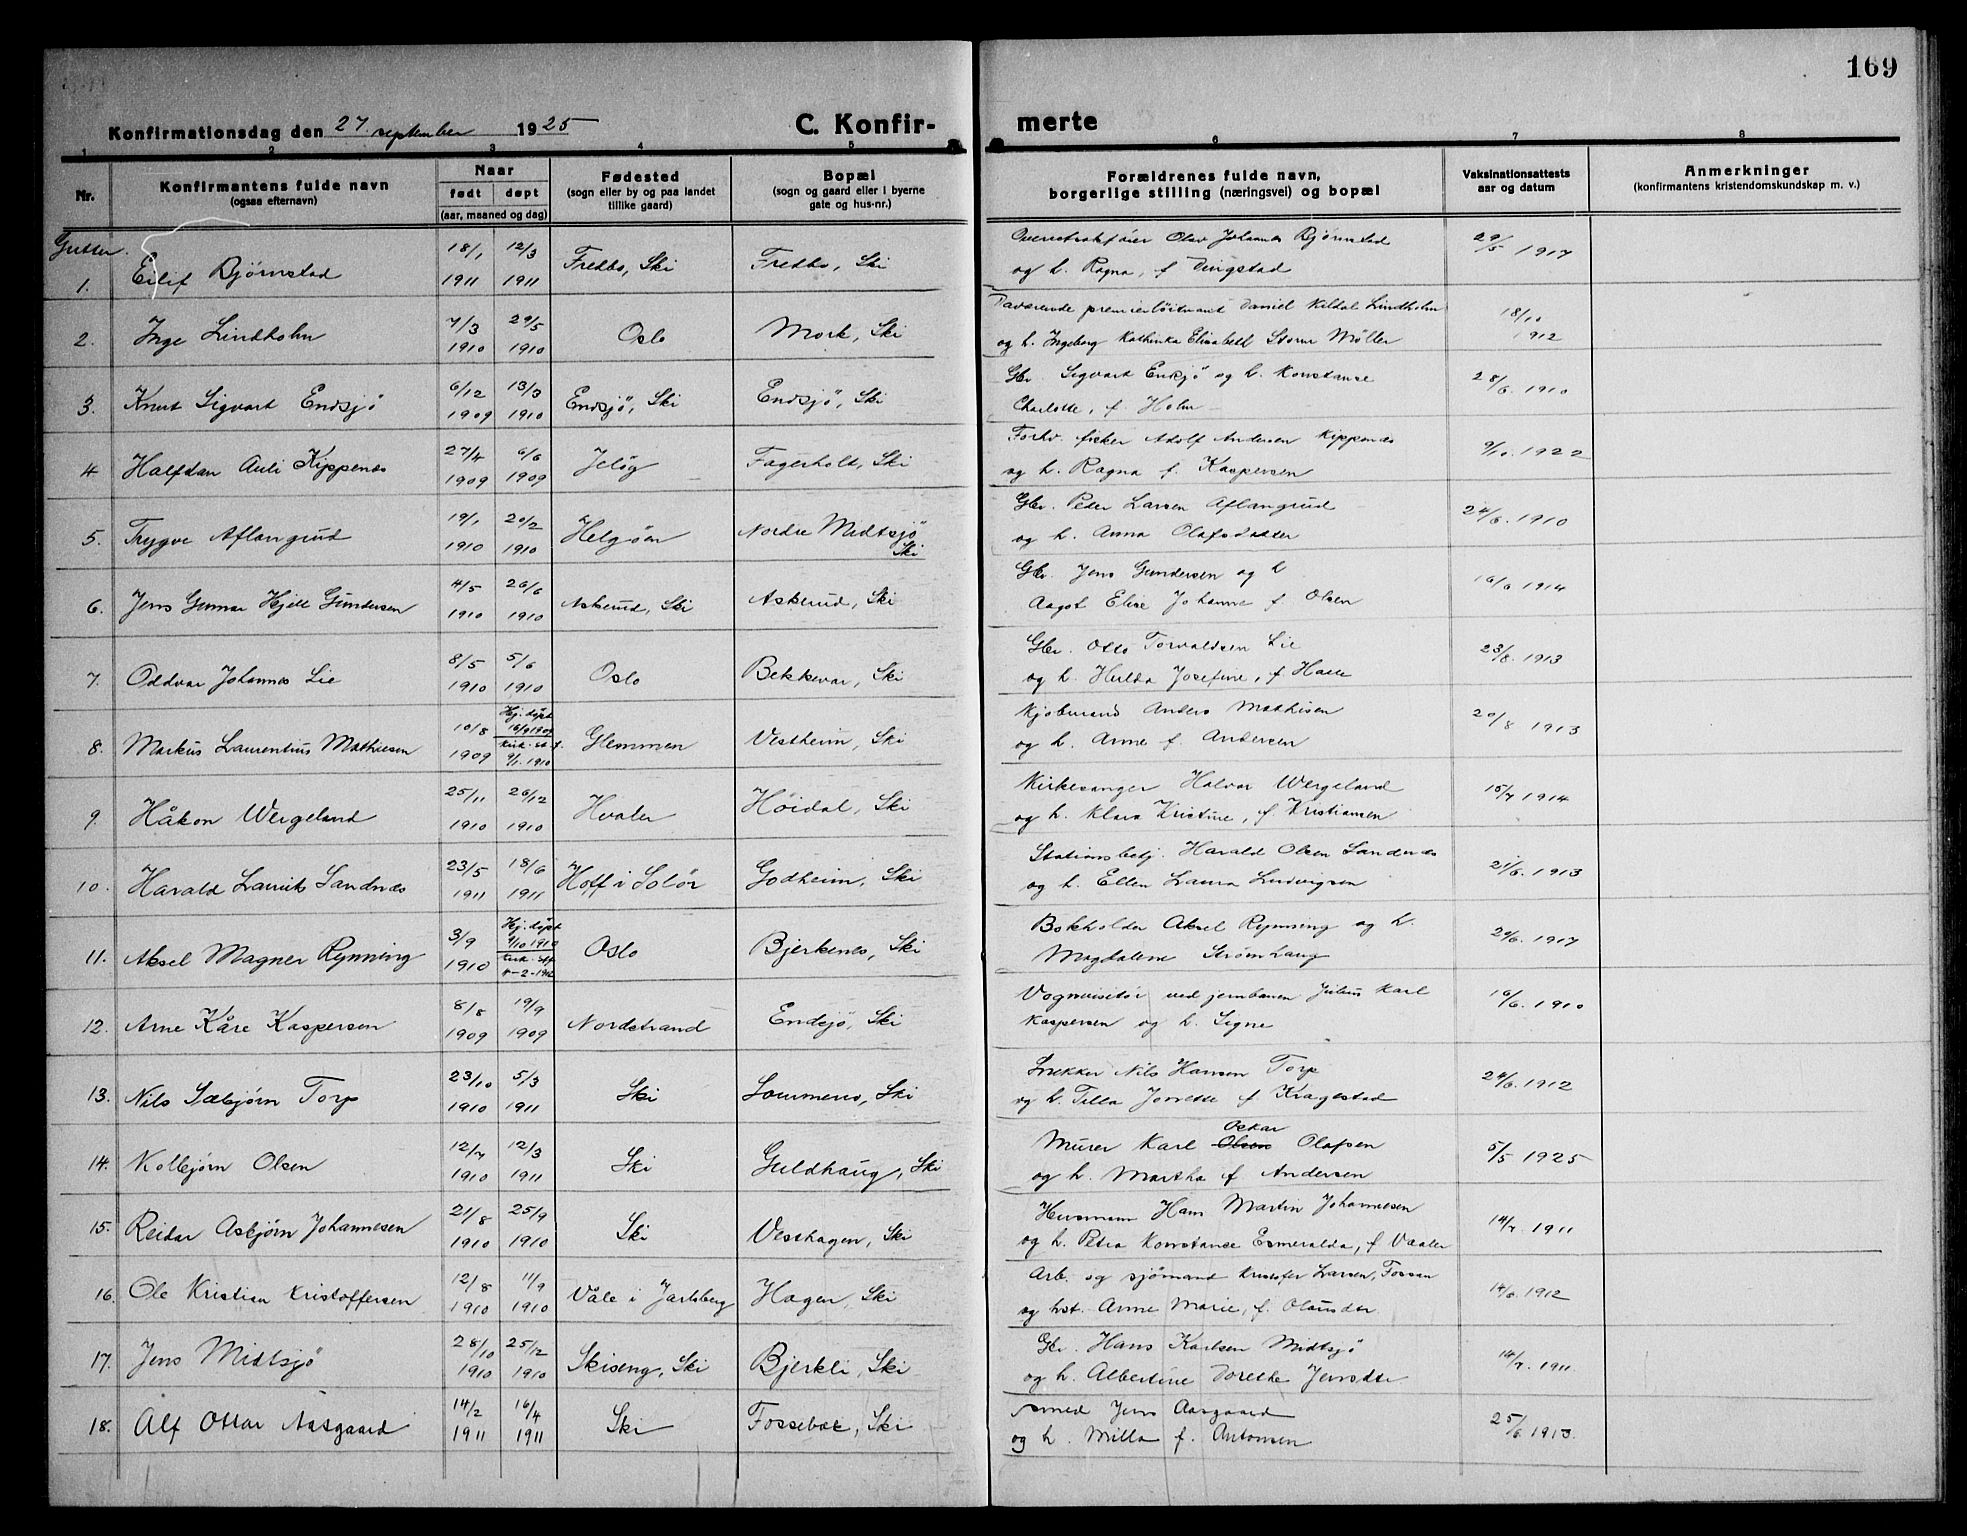 169
Konfirmationsdag den 27. september 1925
C. Konfir-
merte
1 2 3 4 5 6 7 8
Nr.
Konfirmantens fulde navn
(ogsaa efternavn)
Naar
født døpt
(aar, maaned og dag)
Fødested
(sogn eller by og paa landet
tillike gaard)
Bopæl
(sogn og gaard eller i byerne
gate og hus-nr.)
Forældrenes fulde navn,
borgerlige stilling (næringsvei) og bopæl
Vaksinationsattests
aar og datum
Anmerkninger
(konfirmantens kristendomskundskap m. v.)
Gutter.
1. Eilif Bjørnstad 18/1 1911 12/3 1911 Fredbo, Ski Fredbo, Ski
Olav Johannes Bjørnstad
og h. Ragna, f. Dingstad 29/5 1917
2. Inge Lindholm 7/3 1910 29/5 1910 Oslo Mork, Ski
Daværende premierløitnant Daniel Kildal Lindholm
og h. Ingeborg Kathinka Elisabeth Storm Møller 18/10 1912
3. Knut Sigvart Endsjö 6/12 1909 13/3 1910 Endsjö, Ski Endsjö, Ski
Gbr. Sigvart Ensjö og h. Konstanse
Charlotte, f. Holm 28/6 1910
4 Halfdan Auli Kippenes 27/4 1909 6/6 1909 Jeløy Fagerholt, Ski
Forhv. fisker Adolf Andersen Kippenes
og h. Ragna f. Kaspersen 9/10. 1922
5. Trygve Aflangrud 19/1 1910 20/2 1910 Helgøen Nordre Midtsjö Ski
Gbr. Peder Larsen Aflangrud
og h. Anna Olafsdatter 24/6. 1910
6. Jens Gunnar Kjell Gundersen 4/5 1910 26/6 1910 Askerud, Ski Askerud, Ski
Gbr. Jens Gundersen og h
Aagot Elise Johanne f. Olsen 16/6 1914
7. Oddvar Johannes Lie 8/5 1910 5/6 1910 Oslo Bekkevar, Ski
Gbr. Otto Torvaldsen Lie
og h. Hulda Josefine, f. 23/8. 1913
8. Markus Laurentius Mathiesen 10/8 1909 Hj. døpt 16/9 1909 Kirk. st.f. 9/1. 1910 Glemmen Vestheim, Ski
Kjøbmand Anders Mathisen
og h. Anne f Andersen 20/8 1913
9. Håkon Wergeland 25/11 1910 26/12 1910 Hvaler Höidal, Ski
Kirkesanger Halvor Wergeland
og h. Klara Kristine, f. Kristiansen 15/7 1914
10. Harald Laurits Sandnæs 23/5 1911 18/6 1911 Hoff i Solør Godheim, Ski
Stationsbetj. Harald Olsen Sandnæs
og h. Ellen Laura Ludvigsen 21/6. 1913
11. Aksel Magner Rynning 3/9 1910 Hj. døpt 9/10 1910 Oslo Bjerkenes, Ski
Bokholder Aksel Rynning og h.
Magdalene Strømhaug 29/6. 1917
12. Arne Kåre Kaspersen 8/8 1909 19/9 1909 Nordstrand Endsjö, Ski
Vognvisitør ved jernbanen Julius Karl
Kaspersen og h. Signe 16/6. 1910
13. Nils Sæbjørn Torp 23/10 1910 5/3 1911 Ski Sommero, Ski
Snekker Nils Hansen Torp
og h. Tilla Jonette f Kragestad 24/6. 1912
14. Kolbjørn Olsen 12/7 1910 12/3 1911 Ski Guldhaug, Ski
Oskar
Murer Karl Olsen Olafsen
og h. Martha f Andersen 5/5 1925
15. Reidar Asbjørn Johannesen 21/8 1910 25/9 1910 Ski Vesthagen, Ski
Husmann Hans Martin Johannesen
og h. Petra Konstance Esmeralda, f Vaaler 14/7 1911
16. Ole Kristian Kristoffersen 12/8 1910 11/9 1910 Våle i Jarlsberg Hagen, Ski
Arb. og sjömand Kristofer Larsen, Fossan
og hst. Anne Marie, f. Olausdtr. 14/6. 1912
17. Jens Midtsjö 28/10 1910 25/12 1910 Skiseng, Ski Bjerkli, Ski
Gbr. Hans Karlsen Midtsjö
og h. Albertine Dorethe Jensdtr. 14/7. 1911.
18. Alf Ottar Aasgaard 14/2 1911 16/4 1911 Ski Fossebæk, Ski
Smed Jens Aasgaard
og h. Milla f. Antonsen 25/6 1913.